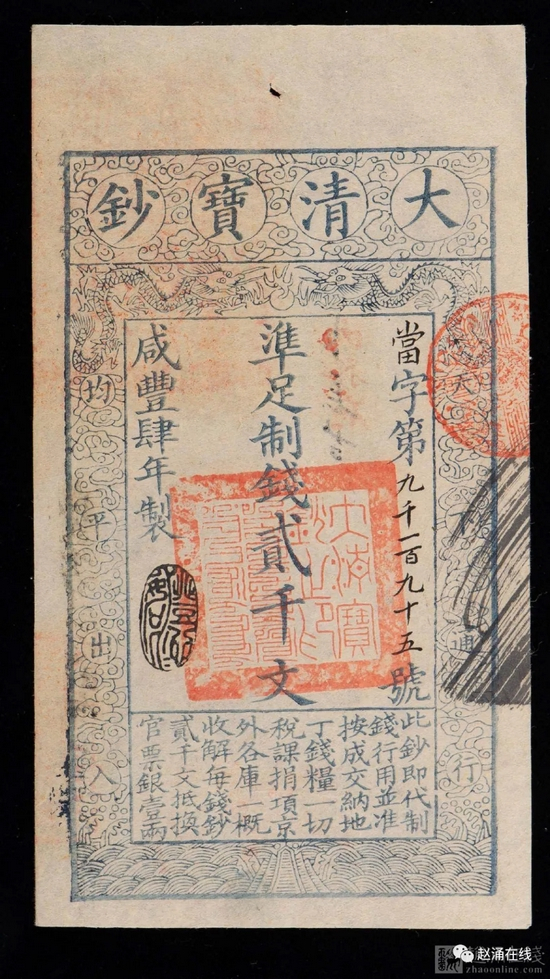 大清寶鈔
當字第九千一百九十五號
準足制錢貳千文
咸豐肆年製
天下通行
均平出入
此鈔即代制
錢行用並准
按成交納地
丁錢糧一切
稅課捐項京
外各庫一概
收解每錢鈔
貳千文抵換
官票銀壹兩
赵涌在线
zhaoonline.com